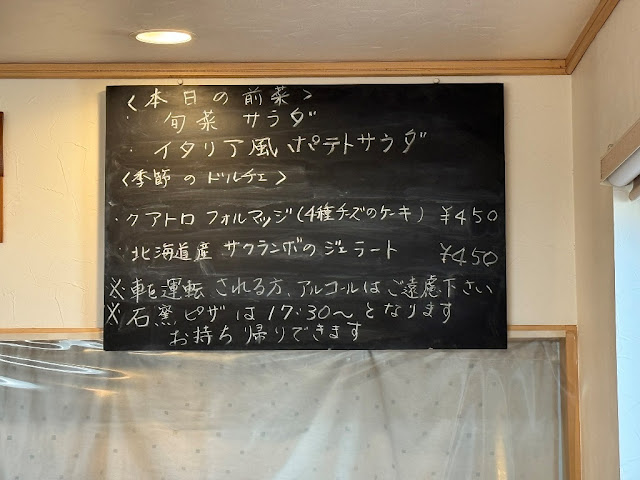 〈本日の前菜〉
・旬菜サラダ
・イタリア風ポテトサラダ
〈季節のドルチェ〉
・クアトロフォルマッジ(4種チーズのケーキ) ¥450
・北海道産サクランボのジェラート ¥450
※車を運転される方、アルコールはご遠慮下さい
※石窯ピザは17:30〜となります
お持ち帰りできます